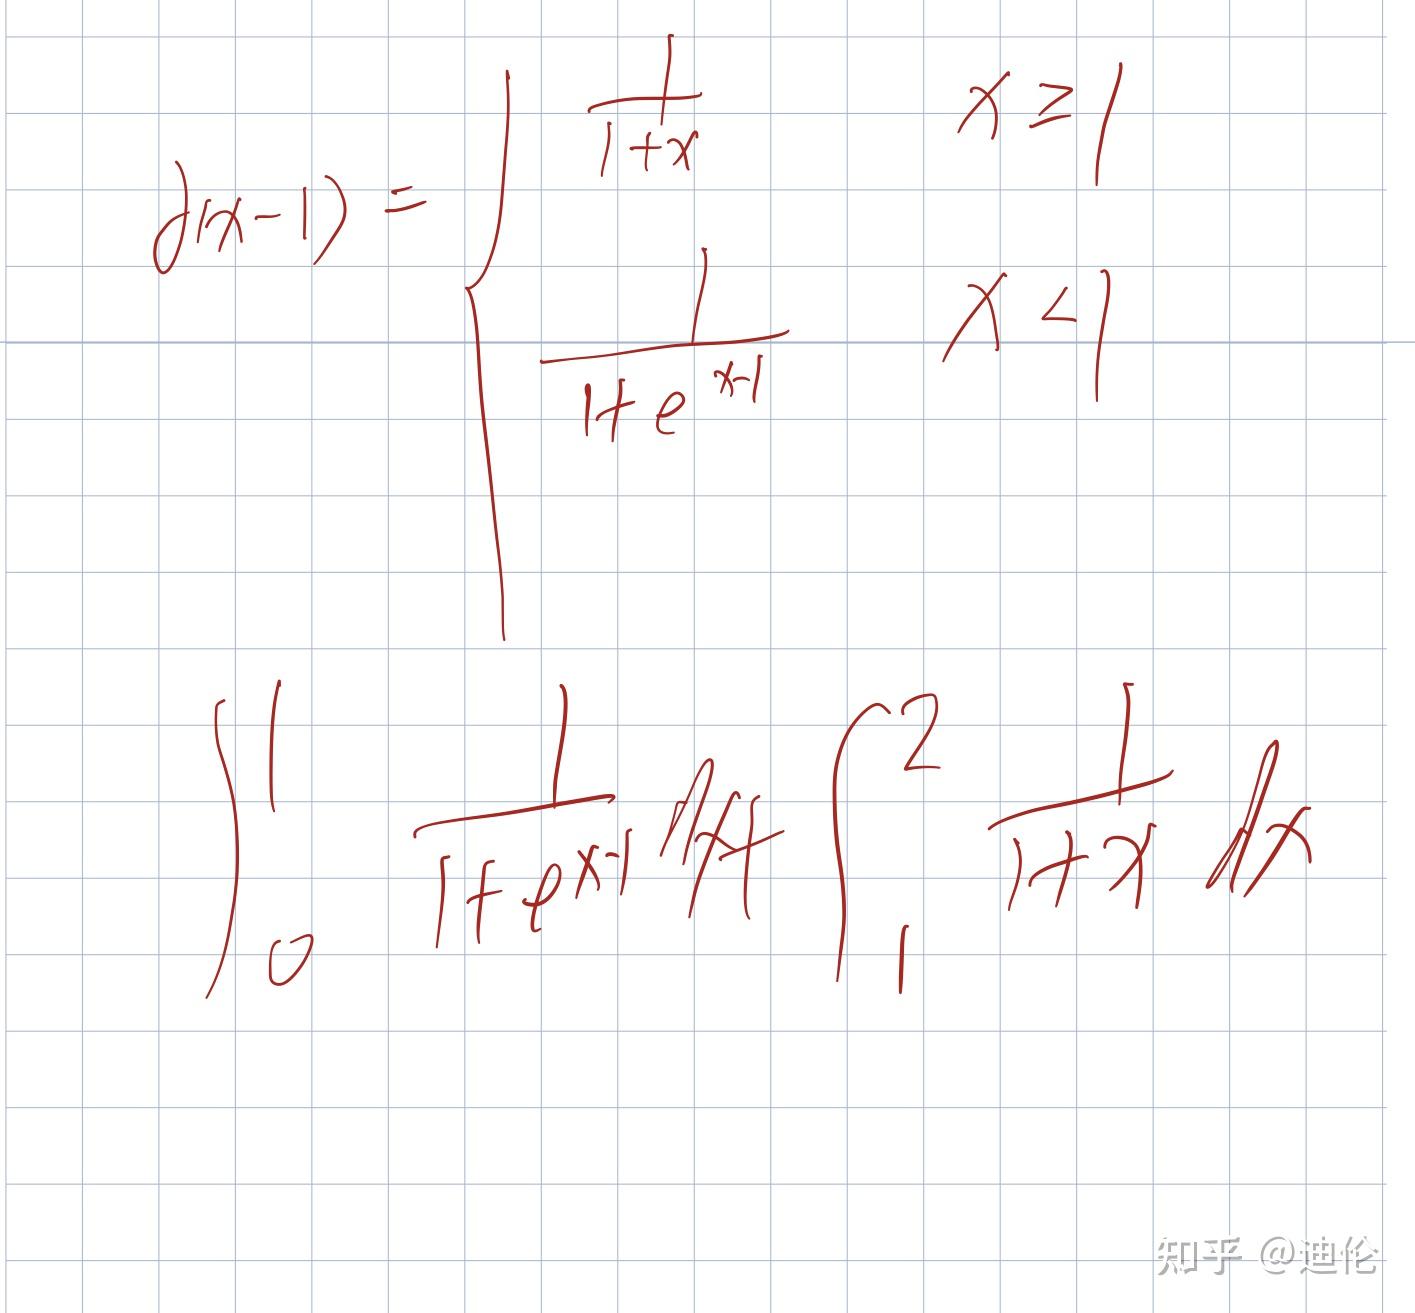 f(x-1) = { 1/(1+x) x ≥ 1
1/(1+e^(x-1)) x < 1
∫_0^1 1/(1+e^(x-1)) dx + ∫_1^2 1/(1+x) dx
知乎 @迪伦